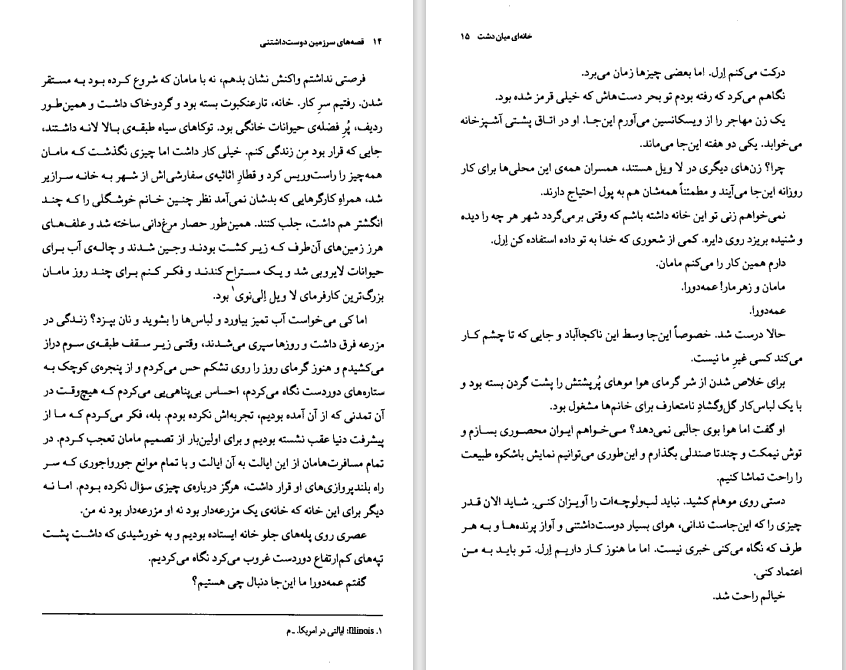 ۱۴ قصه‌های سرزمین دوست‌داشتنی
فرصتی نداشتم واکنش نشان بدهم، نه با مامان که شروع کرده بود به مستقر
شدن. رفتیم سرِ کار. خانه، تارعنکبوت بسته بود و گردوخاک داشت و همین‌طور
ردیف، پُرِ فضله‌ی حیوانات خانگی بود. توکاهای سیاه طبقه‌ی بالا لانه داشتند،
جایی که قرار بود مِن زندگی کنم. خیلی کار داشت اما چیزی نگذشت که مامان
همه‌چیز را راست‌وریس کرد و قطارِ اثاثیه‌ی سفارشی‌اش از شهر به خانه سرازیر
شد، همراهِ کارگرهایی که بدشان نمی‌آمد نظر چنین خانم خوشگلی را که چند
انگشتر هم داشت، جلب کنند. همین‌طور حصار مرغ‌دانی ساخته شد و علف‌های
هرز زمین‌های آن‌طرف که زیر کشت بودند وجین شدند و چاله‌ی آب برای
حیوانات لایروبی شد و یک مستراح کندند و فکر کنم برای چند روز مامان
بزرگ‌ترین کارفرمای لا ویل اِلی‌نوی۱ بود.
اما کی می‌خواست آب تمیز بیاورد و لباس‌ها را بشوید و نان بپزد؟ زندگی در
مزرعه فرق داشت و روزها سپری می‌شدند، وقتی زیر سقف طبقه‌ی سوم دراز
می‌کشیدم و هنوز گرمای روز را روی تشکم حس می‌کردم و از پنجره‌ی کوچک به
ستاره‌های دوردست نگاه می‌کردم، احساس بی‌پناهی‌یی می‌کردم که هیچ‌وقت در
آن تمدنی که از آن آمده بودیم، تجربه‌اش نکرده بودم. بله، فکر می‌کردم که ما از
پیشرفت دنیا عقب نشسته بودیم و برای اولین‌بار از تصمیم مامان تعجب کردم. در
تمام مسافرت‌هامان از این ایالت به آن ایالت و با تمام موانع جورواجوری که سر
راه بلندپروازی‌های او قرار داشت، هرگز درباره‌ی چیزی سؤال نکرده بودم. اما نه
دیگر برای این خانه که خانه‌ی یک مزرعه‌دار بود نه او مزرعه‌دار بود نه من.
عصری روی پله‌های جلو خانه ایستاده بودیم و به خورشیدی که داشت پشت
تپه‌های کم‌ارتفاع دوردست غروب می‌کرد نگاه می‌کردیم.
گفتم عمه‌دورا ما این‌جا دنبال چی هستیم؟
۱. Illinois: ایالتی در امریکا. ـ م
خانه‌ای میان دشت ۱۵
درکت می‌کنم اِرل. اما بعضی چیزها زمان می‌برد.
نگاهم می‌کرد که رفته بودم تو بحر دست‌هاش که خیلی قرمز شده بود.
یک زن مهاجر را از ویسکانسین می‌آورم این‌جا. او در اتاق پشتی آشپزخانه
می‌خوابد. یکی دو هفته این‌جا می‌ماند.
چرا؟ زن‌های دیگری در لا ویل هستند، همسران همه‌ی این محلی‌ها برای کار
روزانه این‌جا می‌آیند و مطمئناً همه‌شان هم به پول احتیاج دارند.
نمی‌خواهم زنی تو این خانه داشته باشم که وقتی برمی‌گردد شهر هر چه را دیده
و شنیده بریزد روی دایره. کمی از شعوری که خدا به تو داده استفاده کن اِرل.
دارم همین کار را می‌کنم مامان.
مامان و زهرمار! عمه‌دورا.
عمه‌دورا.
حالا درست شد. خصوصاً این‌جا وسط این ناکجاآباد و جایی که تا چشم کار
می‌کند کسی غیرِ ما نیست.
برای خلاص شدن از شر گرمای هوا موهای پُرپشتش را پشت گردن بسته بود و
با یک لباس‌کار گل‌وگشادِ نامتعارف برای خانم‌ها مشغول بود.
او گفت اما هوا بوی جالبی نمی‌دهد؟ می‌خواهم ایوان محصوری بسازم و
توش نیمکت و چندتا صندلی بگذارم و این‌طوری می‌توانیم نمایش باشکوه طبیعت
را راحت تماشا کنیم.
دستی روی موهام کشید. نباید لب‌ولوچه‌ات را آویزان کنی. شاید الان قدر
چیزی را که این‌جاست ندانی، هوای بسیار دوست‌داشتنی و آواز پرنده‌ها و به هر
طرف که نگاه می‌کنی خبری نیست. اما ما هنوز کار داریم اِرل. تو باید به من
اعتماد کنی.
خیالم راحت شد.